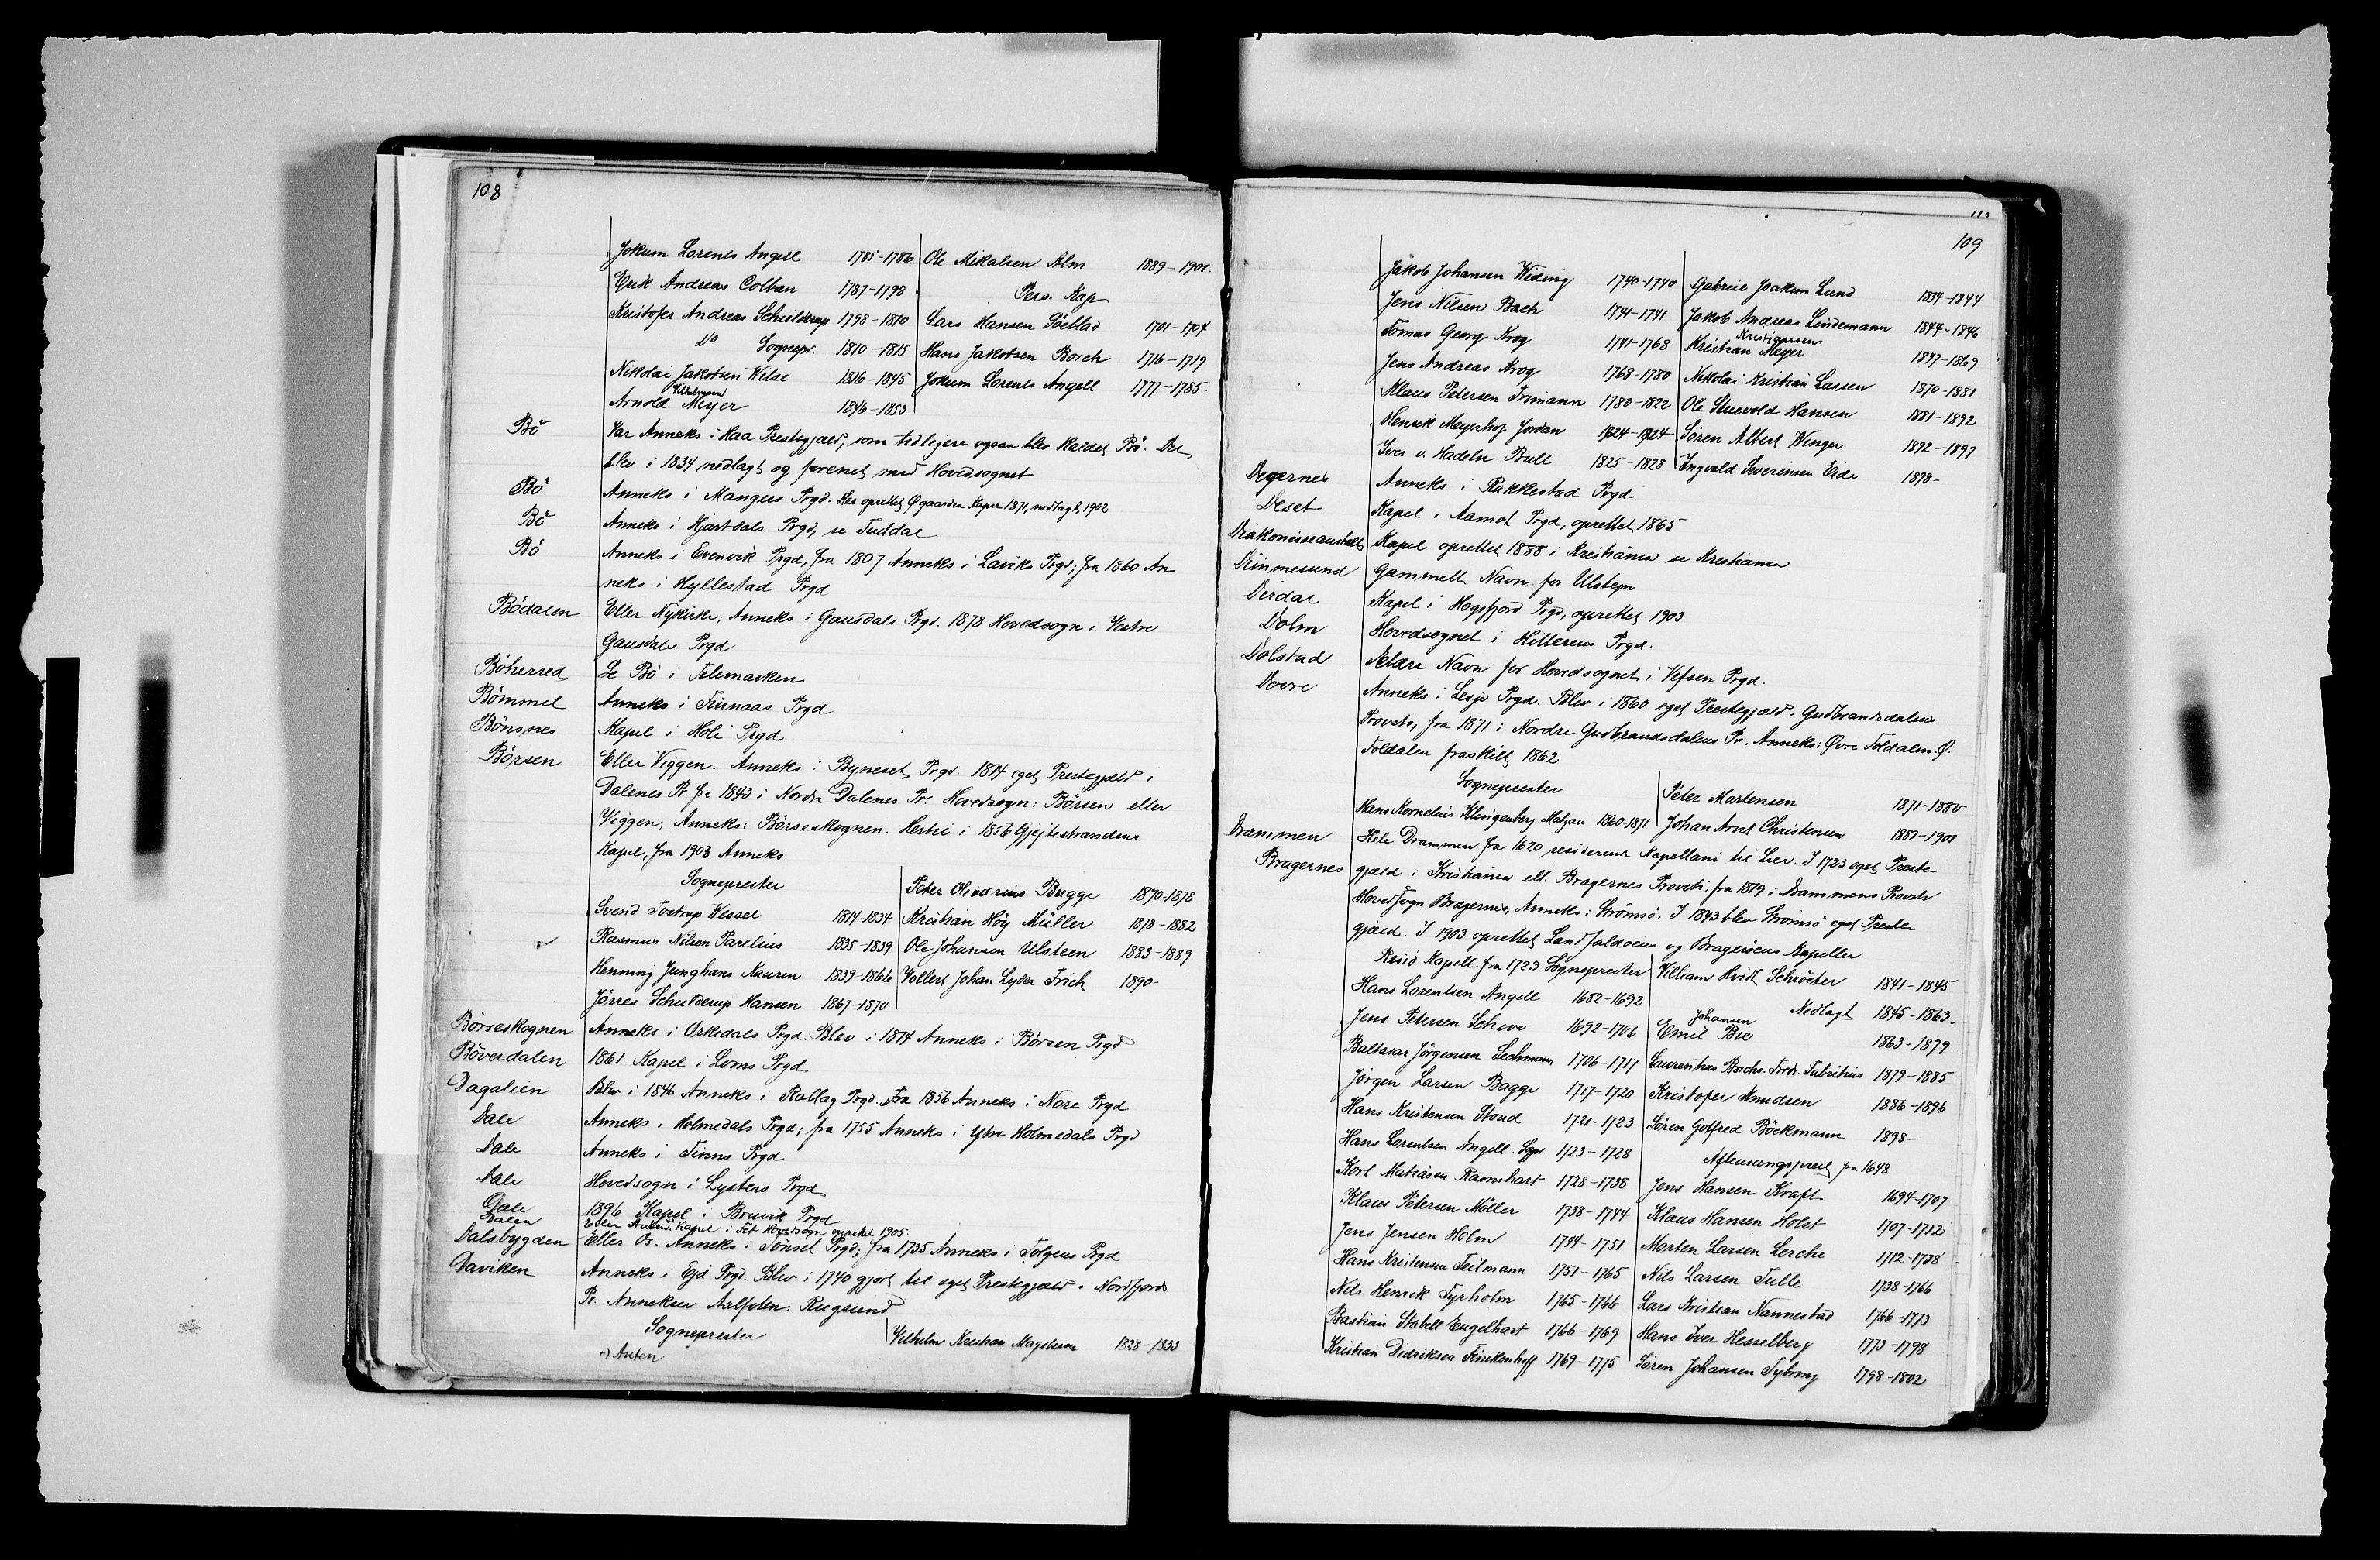 108
Jokum Lorents Angell 1785-1786
Erik Andreas Colban 1787-1798
Kristofer Andreas Schielderup 1798-1810
Do Sognepr. 1810-1815
Nikolai Jakobsen Wilse 1816-1845
Vilhelmsen
Arnold Meyer 1846-1853
Ole Mikalsen Alm 1889-1901.
Pers. Kap
Lars Hansen Söeblad 1701-1704
Hans Jakobsen Borch 1716-1719
Jokum Lorents Angell 1777-1785.
Bö Var Anneks i Haa Prestegjæld, som tidligere ogsaa blev kaldet Bö. Det
blev i 1834 nedlagt og forenet med Hovedsognet
Bö Anneks i Mangers Prgd. Her oprettet Øgaarden Kapel 1871, nedlagt 1902
Bö Anneks i Hjartdals Prgd, se Tuddal
Bö Anneks i Evenvik Prgd, fra 1807 Anneks i Laviks Prgd; fra 1860 An
neks i Hyllestad Prgd
Bödalen Eller Nykirke, Anneks i Gausdals Prgd. 1878 Hovedsogn i Vestre
Gausdals Prgd
Böherred Se Bö i Telemarken
Bömmel Anneks i Finnaas Prgd
Bönsnes Kapel i Hole Prgd
Börsen Eller Viggen. Anneks i Bynesets Prgd. 1814 eget Prestegjæld i
Dalenes Pr. fra 1843 i Nordre Dalenes Pr. Hovedsogn: Börsen eller
Viggen, Anneks: Börseskognen. Hertil i 1856 Gjejtestrandens
Kapel, fra 1903 Anneks
Sogneprester
Svend Tostrup Wessel 1814-1834
Rasmus Nilsen Parelius 1835-1839
Henning Junghans Kaurin 1839-1866
Jörres Schielderup Hansen 1867-1870
Peter Olivarius Bugge 1870-1878
Kristian Höy Müller 1878-1882
Ole Johansen Ulsteen 1883-1889
Vollert Johan Lyder Frich 1890-
Börseskognen Anneks i Orkedals Prgd. Blev i 1814 Anneks i Börsen Prgd
Böverdalen 1861 Kapel i Loms Prgd
Dagalien Blev i 1846 Anneks i Rollag Prgd. Fra 1856 Anneks i Nore Prgd
Dale Anneks i Holmedals Prgd; fra 1755 Anneks i Ytre Holmedals Prgd
Dale Anneks i Tinns Prgd
Dale Hovedsogn i Lysters Prgd
Dale 1896 Kapel i Bruvik Prgd
Dalen Eller Auten. Kapel i Fet Hovedsogn oprettet 1905.
Dalsbygden Eller Os. Anneks i Tönset Prgd; fra 1735 Anneks i Tolgens Prgd
Daviken Anneks i Ejd Prgd. Blev i 1740 gjort til eget Prestegjæld i Nordfjords
Pr. Annekser Aalfoten. Rugsund
Sogneprester
Vilhelm Kristian Magelssen 1828-1833
Auten
109
Jakob Johansen Widing 1740-1740
Jens Nilsen Bach 1741-1741
Tomas Georg Krog 1741-1768
Jens Andreas Krog 1768-1780
Klaus Petersen Frimann 1780-1822
Henrik Meyerhof Jordan 1824-1824
Iver v. Hadeln Bull 1825-1828
Gabriel Joakim Lund 1834-1844
Jakob Andreas Lindemann 1844-1846
Kristiansen
Kristian Meyer 1847-1869
Nikolai Kristian Lassen 1870-1881
Ole Stuevold Hansen 1881-1892
Sören Albert Winger 1892-1897
Engvald Severinsen Eide 1898-
Degernes Anneks i Rakkestad Prgd.
Deset Kapel i Aamot Prgd, oprettet 1865
Diakonisseanstalts Kapel oprettet 1888 i Kristiania se Kristiania
Dimmesund Gammelt Navn for Ulstejn
Dirdal Kapel i Högsfjord Prgd, oprettet 1903
Dolm Hovedsognet i Hitterens Prgd.
Dolstad Ældre Navn for Hovedsognet i Vefsen Prgd.
Dovre Anneks i Lesje Prgd. Blev i 1860 eget Prestegjæld. Gudbrandsdalens
Provsti, fra 1871 i Nordre Gudbrandsdalens Pr. Anneks: Øvre Foldalen. Ø.
Foldalen fraskilt 1862
Sogneprester
Hans Kornelius Klingenberg Matzau 1860-1871
Peter Mortensen 1871-1880
Johan Arnt Christensen 1881-1901
Drammen Hele Drammen fra 1620 residerende Kapellani til Lier. I 1723 eget Preste-
Bragernes gjæld i Kristiania ell. Bragernes Provsti: fra 1819 i Drammens Provsti
Hovedsogn Bragernes, Anneks: Strömsö. I 1843 blev Strömsö eget Preste
gjæld. I 1903 oprettet Landfaldöens og Bragerøens Kapeller
Resid Kapell. fra 1723 Sogneprester
Hans Lorentsen Angell 1682-1692
Jens Petersen Schive 1692-1706
Baltasar Jörgensen Lechmann 1706-1717
Jörgen Larsen Bagge 1717-1720
Hans Kristensen Stoud 1721-1723
Hans Lorentsen Angell. Sgpr. 1723-1728
Kort Matiasen Ramshart 1728-1738
Klaus Petersen Möller 1738-1744
Jens Jensen Holm 1744-1751
Hans Kristensen Teilmann 1751-1765
Nils Henrik Tyrholm 1765-1766
Bastian Stabell Engelhart 1766-1769
Kristian Didriksen Finckenhoff 1769-1775
William Hvidt Schröeter 1841-1845
Nedlagt 1845-1863.
Johansen
Emil Bie 1863-1879
Laurentius Borchs. Fredr. Fabritius 1879-1885
Kristofer Knudsen 1886-1896
Sören Gotfred Böckmann 1898-
Aftensangsprest fra 1648
Jens Hansen Kraft 1694-1707
Klaus Hansen Holst 1707-1712
Morten Larsen Lerche 1712-1738
Nils Larsen Tulle 1738-1766
Lars Kristian Nannestad 1766-1773
Hans Iver Hesselberg 1773-1798
Sören Johansen Tybring 1798-1802